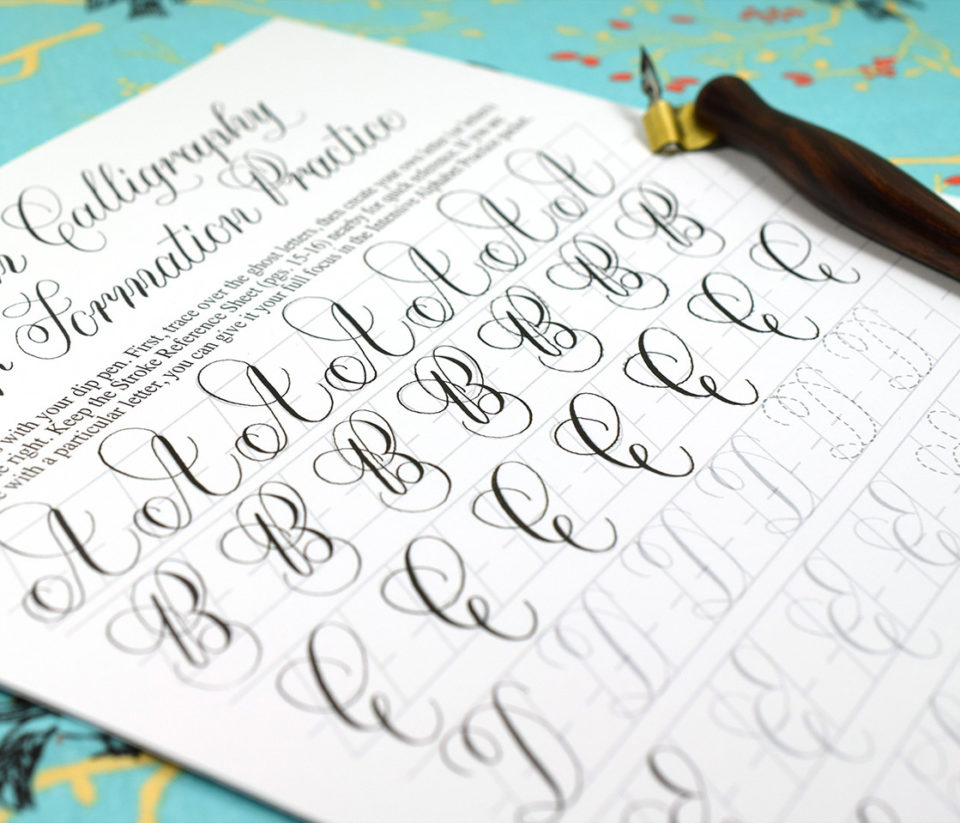 Calligraphy
Formation Practice
with your dip pen. First, trace over the ghost letters, then create your own letter or letters
right. Keep the Stroke Reference Sheet (pgs. 15-16) nearby for quick reference. If you are
with a particular letter, you can give it your full focus in the Intensive Alphabet Practice
A A A A A A A
B B B B B B B
C C C C C C C
D D D D D D
E E E